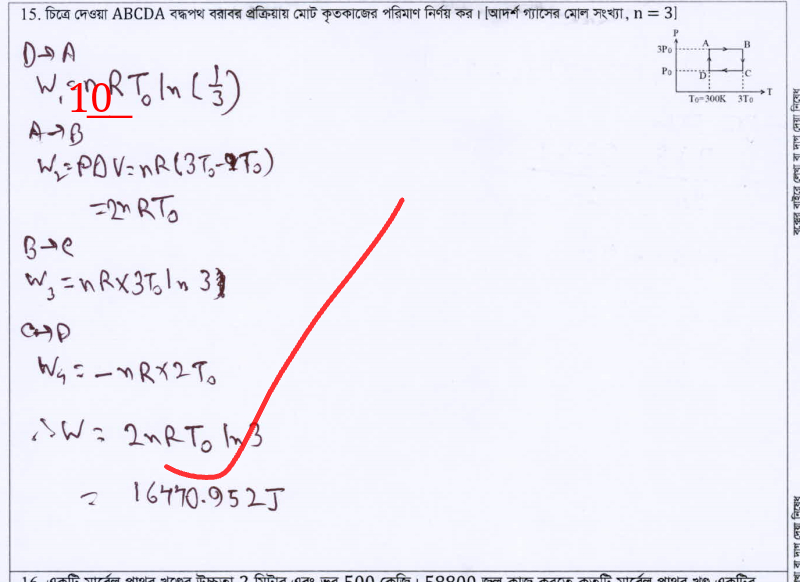 15. চিত্রে দেওয়া ABCDA বদ্ধপথ বরাবর প্রক্রিয়ায় মোট কৃতকাজের পরিমাণ নির্ণয় কর। [আদর্শ গ্যাসের মোল সংখ্যা, n = 3]
P
3P₀ A B
P₀ D C
T₀=300K 3T₀ T
D→A
W₁ = nRT₀ ln(1/3)
10
A→B
W₂ = PΔV = nR(3T₀-T₀)
= 2nRT₀
B→C
W₃ = nR×3T₀ ln 3
C→D
W₄ = -nR×2T₀
∴ W = 2nRT₀ ln 3
= 16440.952J
16. একটি মার্বেল পাথর খণ্ডের উচ্চতা 2 মিটার এবং ভর 500 কেজি। 58800 জুল কাজ করতে কতটি মার্বেল পাথর খণ্ড একটির